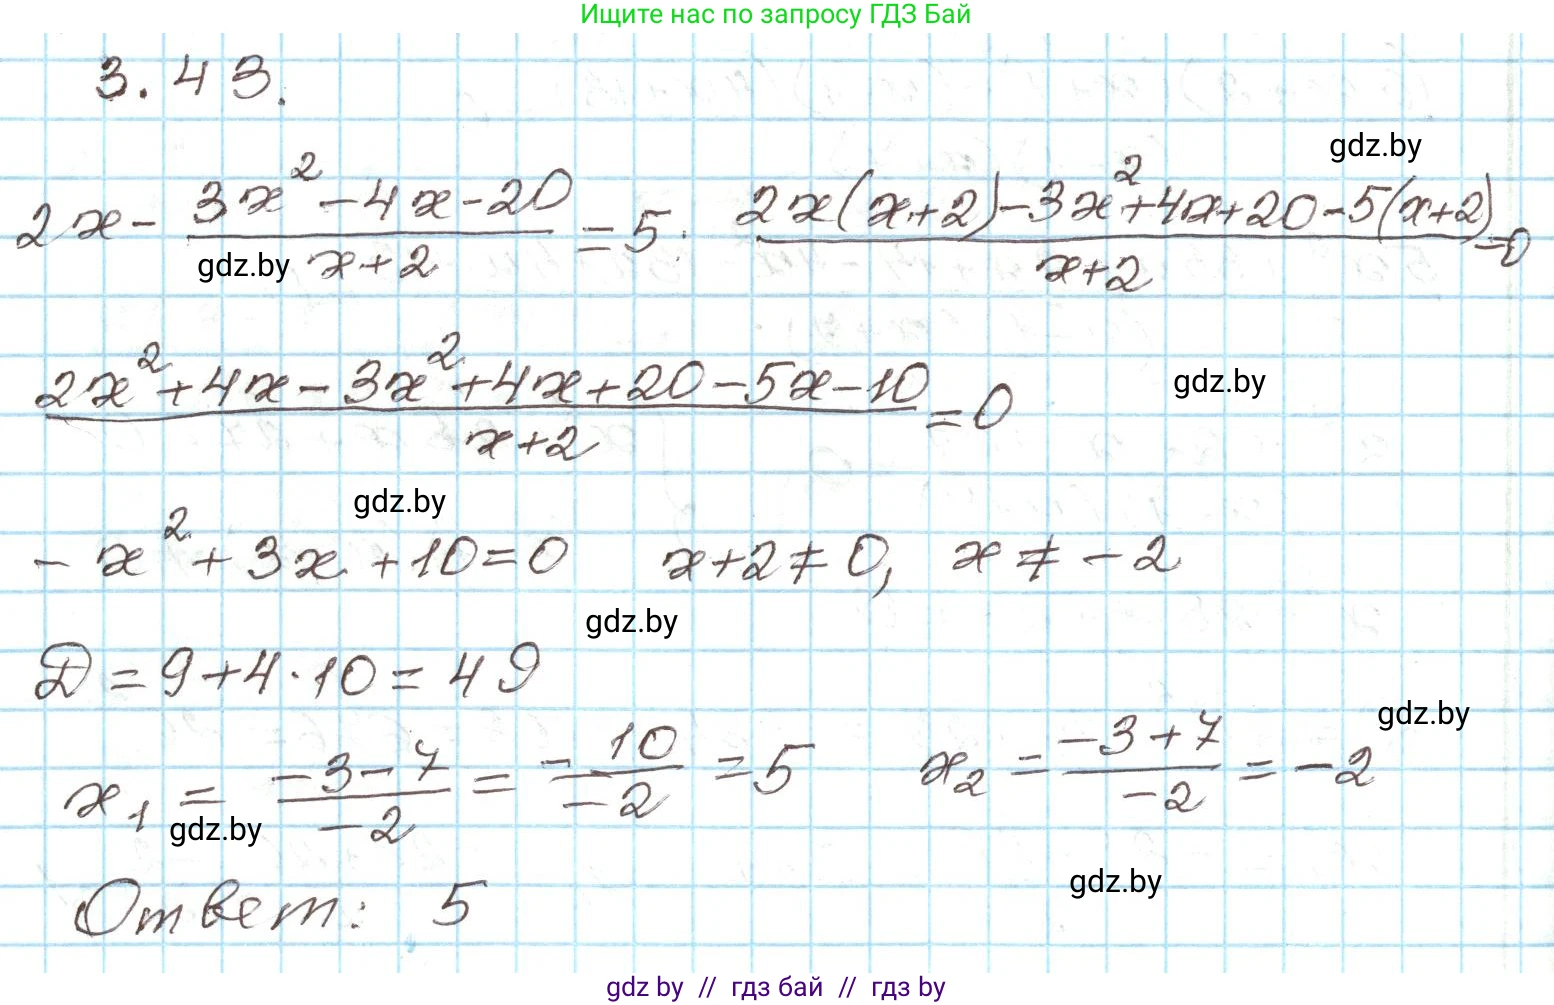 Ищите нас по запросу ГДЗ Бай
3.43.
gdz.by
2x - (3x² - 4x - 20)/(x+2) = 5. (2x(x+2) - 3x² + 4x + 20 - 5(x+2))/(x+2) = 0
gdz.by
(2x² + 4x - 3x² + 4x + 20 - 5x - 10)/(x+2) = 0
gdz.by
gdz.by
- x² + 3x + 10 = 0 x+2 ≠ 0, x ≠ -2
gdz.by
D = 9 + 4·10 = 49
gdz.by
x₁ = (-3-7)/(-2) = (-10)/(-2) = 5 x₂ = (-3+7)/(-2) = -2
gdz.by
gdz.by
Ответ: 5
gdz.by // гдз бай // гдз by